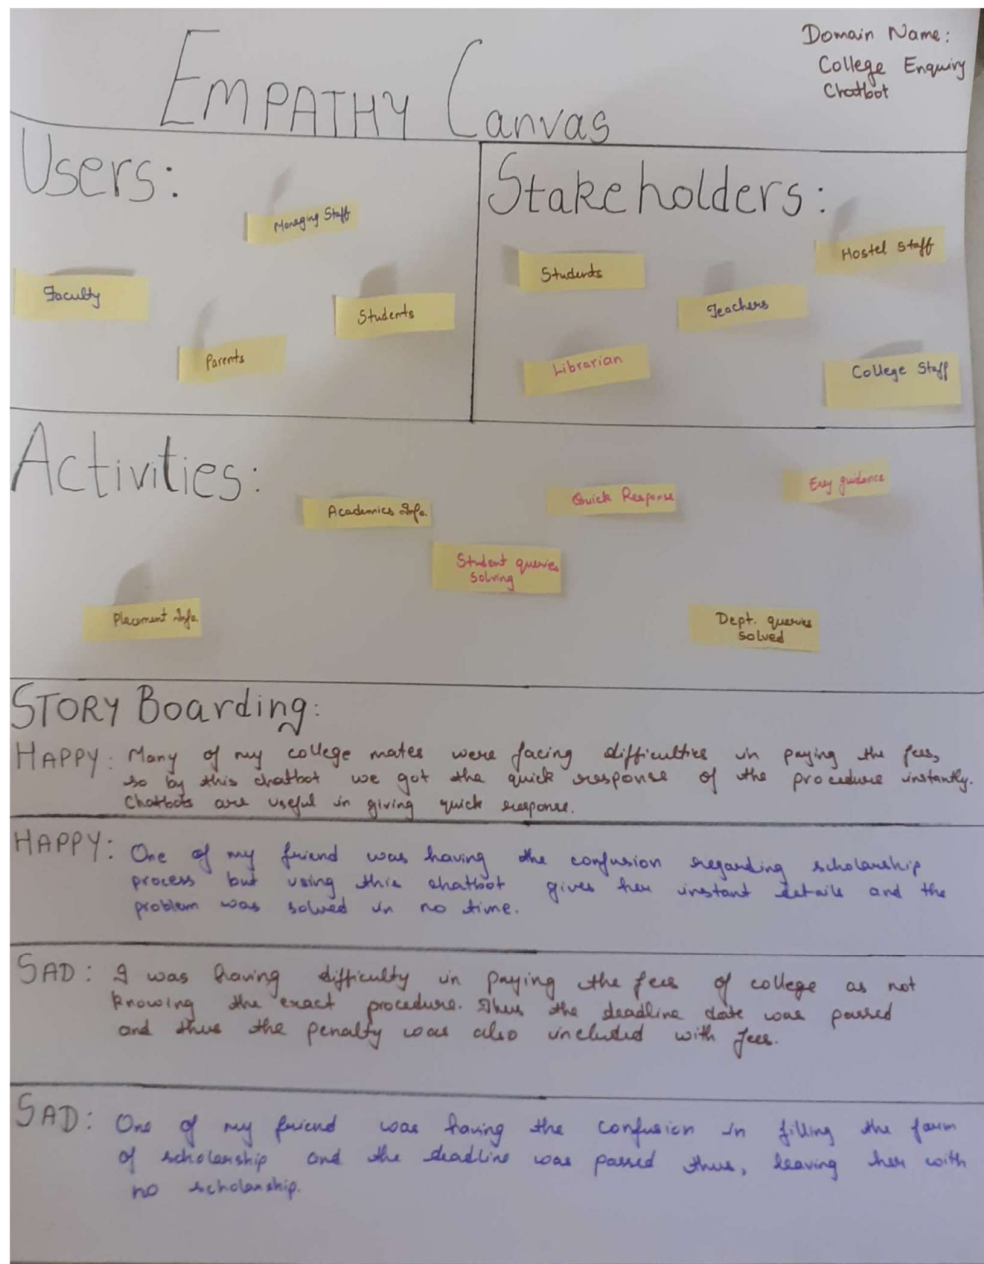 EMPATHY Canvas
Domain Name:
College Enquiry
Chatbot
Users:
Managing Staff
Faculty
Students
Parents
Stakeholders:
Hostel Staff
Students
Teachers
Librarian
College Staff
Activities:
Academics Info.
Quick Response
Esy guidance
Student queries
solving
Placement Info
Dept. queries
solved
STORY Boarding:
HAPPY: Many of my college mates were facing difficulties in paying the fees,
so by this chatbot we got the quick response of the procedure instantly.
Chatbots are useful in giving quick response.
HAPPY: One of my friend was having the confusion regarding scholarship
process but using this chatbot gives her instant details and the
problem was solved in no time.
SAD: I was having difficulty in paying the fees of college as not
knowing the exact procedure. Thus the deadline date was passed
and thus the penalty was also included with fees.
SAD: One of my friend was having the confusion in filling the form
of scholarship and the deadline was passed thus, leaving her with
no scholarship.